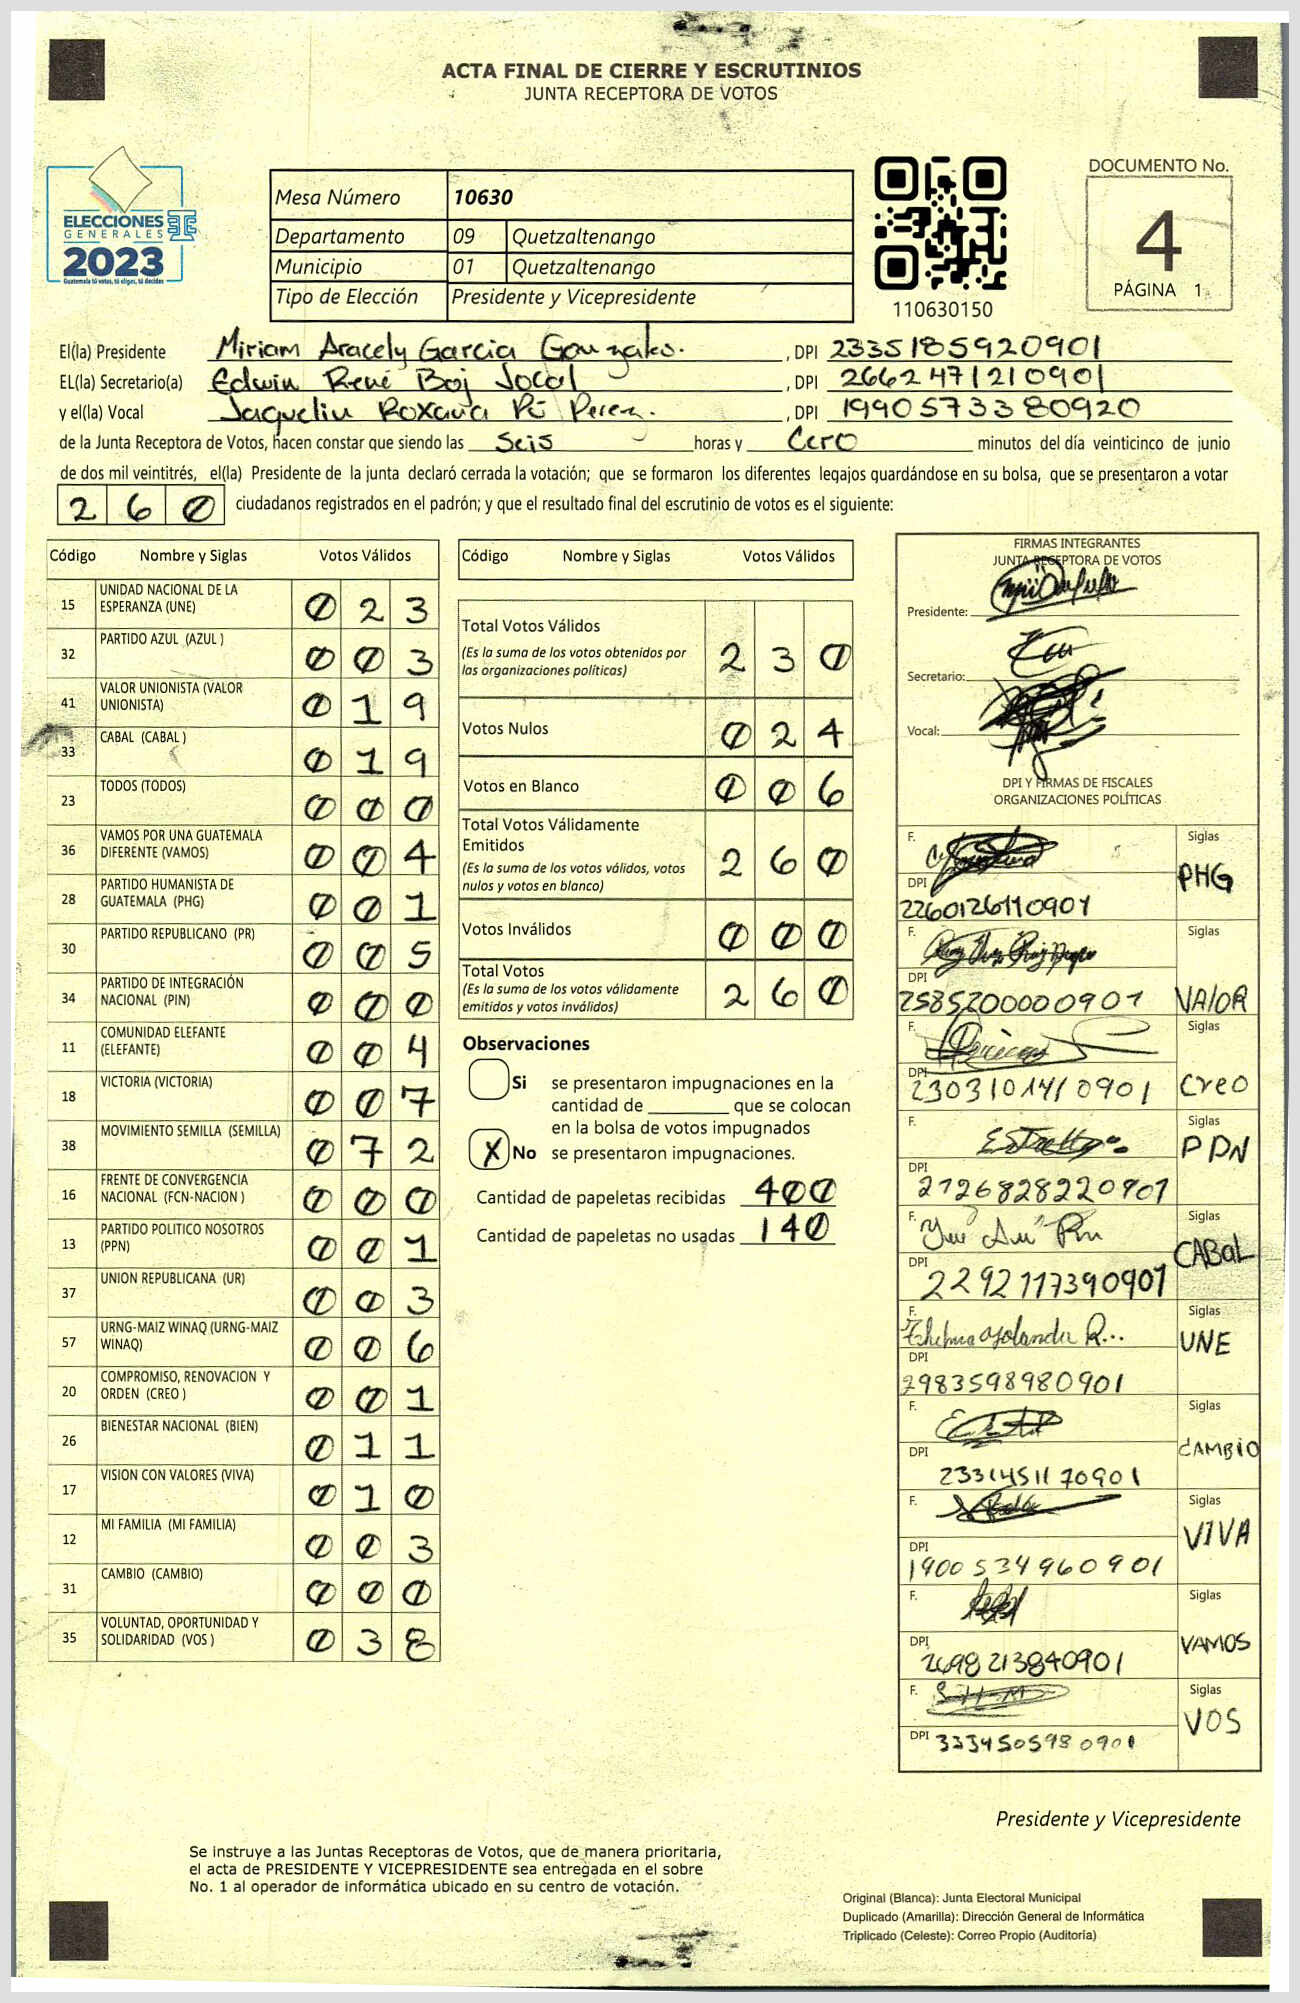 ACTA FINAL DE CIERRE Y ESCRUTINIOS
JUNTA RECEPTORA DE VOTOS
ELECCIONES
GENERALES
2023
Guatemala tú votas, tú eliges, tú decides
Mesa Número 10630
Departamento 09 Quetzaltenango
Municipio 01 Quetzaltenango
Tipo de Elección Presidente y Vicepresidente
110630150
DOCUMENTO No.
4
PÁGINA 1
El(la) Presidente Miriam Aracely Garcia Gonzales. , DPI 2335185920901
EL(la) Secretario(a) Edwin René Boj Jocol , DPI 2662471210901
y el(la) Vocal Jaquelin Roxana Pú Perez. , DPI 1990573380920
de la Junta Receptora de Votos, hacen constar que siendo las seis horas y cero minutos del día veinticinco de junio
de dos mil veintitrés, el(la) Presidente de la junta declaró cerrada la votación; que se formaron los diferentes legajos guardándose en su bolsa, que se presentaron a votar
260 ciudadanos registrados en el padrón; y que el resultado final del escrutinio de votos es el siguiente:
Código Nombre y Siglas Votos Válidos
15 UNIDAD NACIONAL DE LA ESPERANZA (UNE) 023
32 PARTIDO AZUL (AZUL ) 003
41 VALOR UNIONISTA (VALOR UNIONISTA) 019
33 CABAL (CABAL ) 019
23 TODOS (TODOS) 000
36 VAMOS POR UNA GUATEMALA DIFERENTE (VAMOS) 004
28 PARTIDO HUMANISTA DE GUATEMALA (PHG) 001
30 PARTIDO REPUBLICANO (PR) 005
34 PARTIDO DE INTEGRACIÓN NACIONAL (PIN) 000
11 COMUNIDAD ELEFANTE (ELEFANTE) 004
18 VICTORIA (VICTORIA) 007
38 MOVIMIENTO SEMILLA (SEMILLA) 072
16 FRENTE DE CONVERGENCIA NACIONAL (FCN-NACION ) 000
13 PARTIDO POLITICO NOSOTROS (PPN) 001
37 UNION REPUBLICANA (UR) 003
57 URNG-MAIZ WINAQ (URNG-MAIZ WINAQ) 006
20 COMPROMISO, RENOVACION Y ORDEN (CREO ) 001
26 BIENESTAR NACIONAL (BIEN) 011
17 VISION CON VALORES (VIVA) 010
12 MI FAMILIA (MI FAMILIA) 003
31 CAMBIO (CAMBIO) 000
35 VOLUNTAD, OPORTUNIDAD Y SOLIDARIDAD (VOS ) 038
Código Nombre y Siglas Votos Válidos
Total Votos Válidos 230
(Es la suma de los votos obtenidos por
las organizaciones políticas)
Votos Nulos 024
Votos en Blanco 006
Total Votos Válidamente
Emitidos 260
(Es la suma de los votos válidos, votos
nulos y votos en blanco)
Votos Inválidos 000
Total Votos 260
(Es la suma de los votos válidamente
emitidos y votos inválidos)
Observaciones
Si se presentaron impugnaciones en la
cantidad de ________ que se colocan
en la bolsa de votos impugnados
X No se presentaron impugnaciones.
Cantidad de papeletas recibidas 400
Cantidad de papeletas no usadas 140
FIRMAS INTEGRANTES
JUNTA RECEPTORA DE VOTOS
Presidente:
Secretario:
Vocal:
DPI Y FIRMAS DE FISCALES
ORGANIZACIONES POLÍTICAS
F. Siglas PHG
DPI 2260126110901
F. Siglas VAlOR
DPI 2585200000901
F. Siglas Creo
DPI 2303101410901
F. Siglas PPN
DPI 2126828220901
F. Siglas CABaL
DPI 2292117390901
F. Thelma Yolanda R... Siglas UNE
DPI 2983598980901
F. Siglas CAMBIO
DPI 2331451170901
F. Siglas VIVA
DPI 1900534960901
F. Siglas VAMOS
DPI 2698213840901
F. Siglas VOS
DPI 3334505980901
Presidente y Vicepresidente
Se instruye a las Juntas Receptoras de Votos, que de manera prioritaria,
el acta de PRESIDENTE Y VICEPRESIDENTE sea entregada en el sobre
No. 1 al operador de informática ubicado en su centro de votación.
Original (Blanca): Junta Electoral Municipal
Duplicado (Amarilla): Dirección General de Informática
Triplicado (Celeste): Correo Propio (Auditoría)